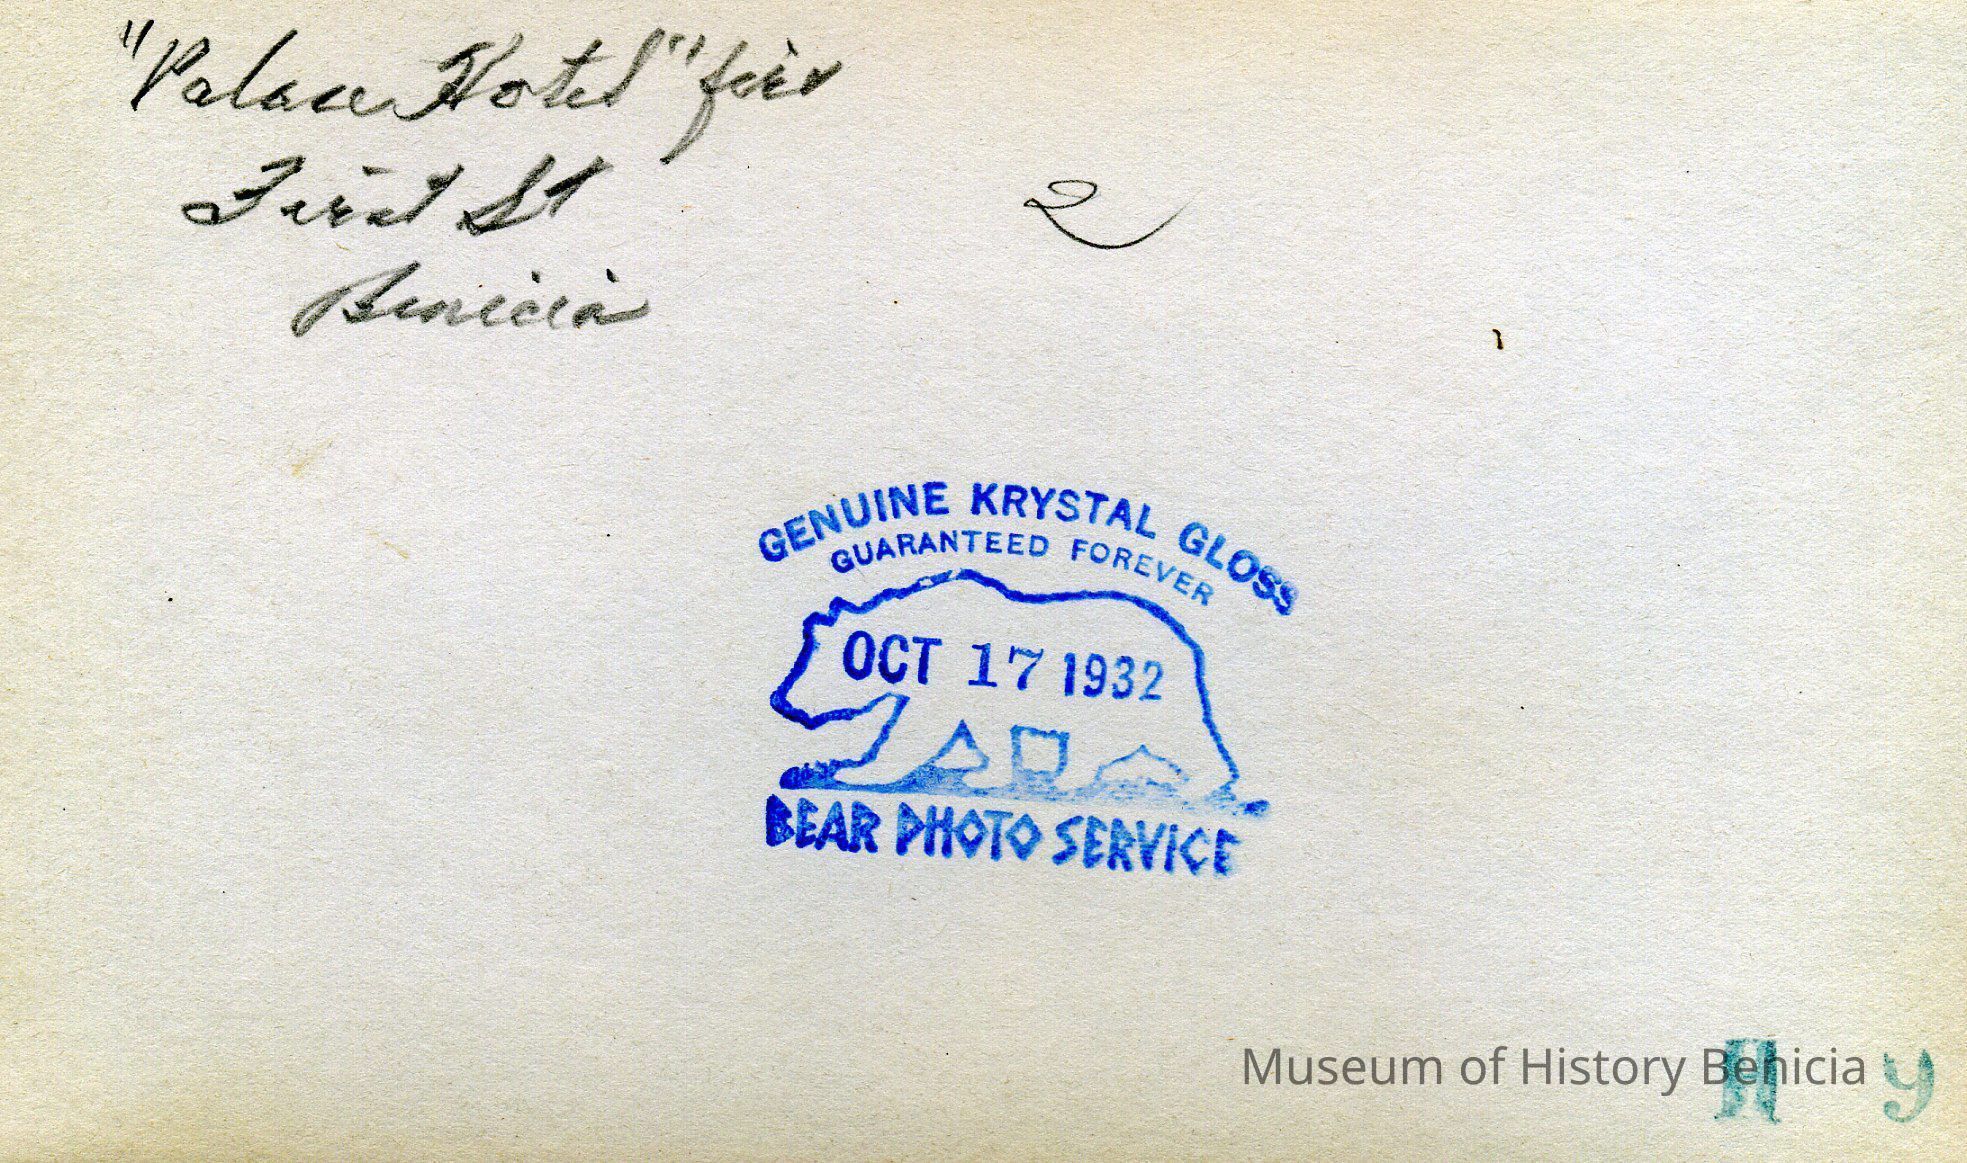 "Palace Hotel" fire
First St
Benicia
2
GENUINE KRYSTAL GLOSS
GUARANTEED FOREVER
OCT 17 1932
BEAR PHOTO SERVICE
Museum of History Benicia
H y